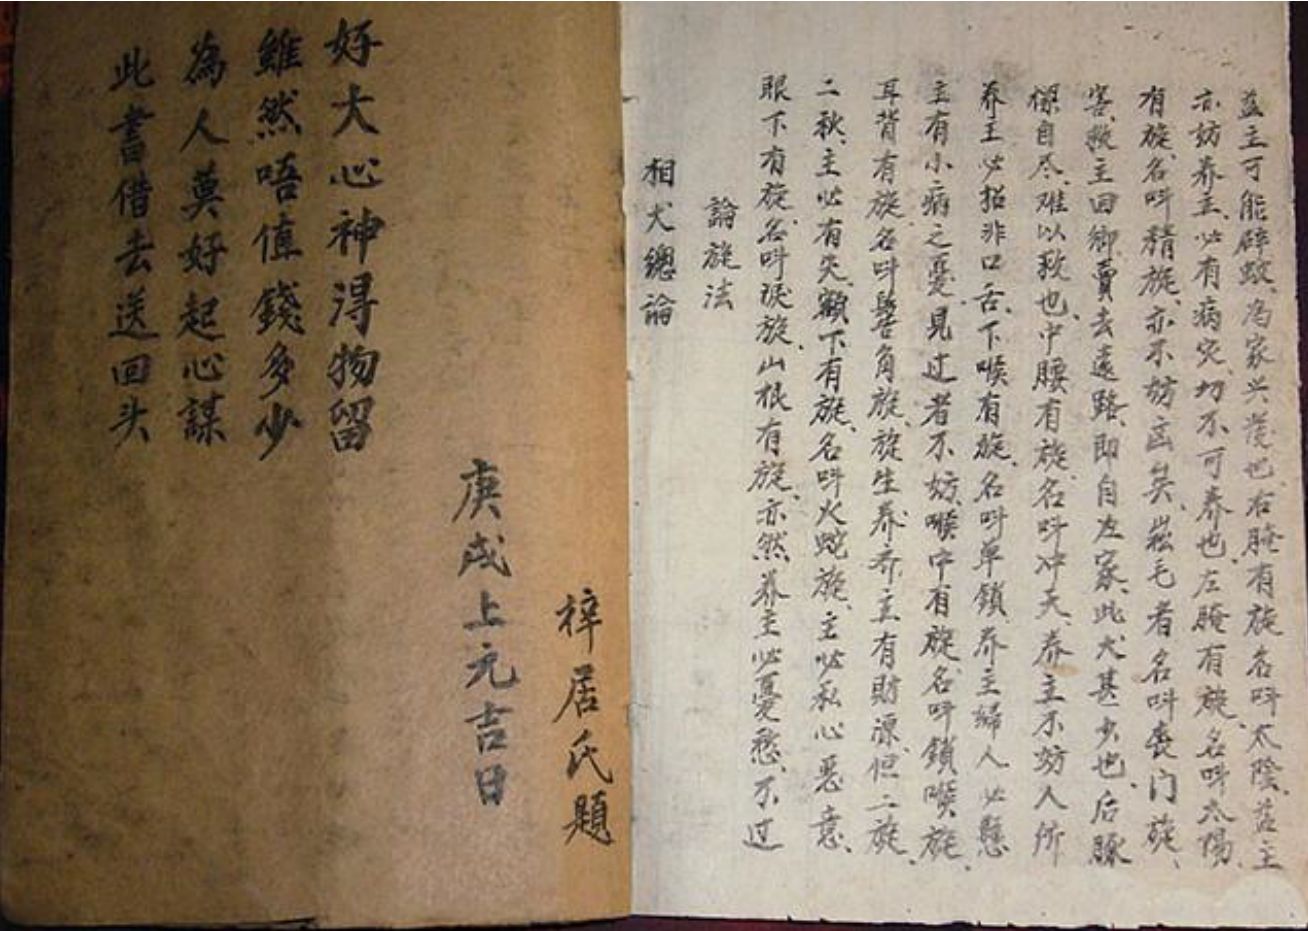 此書借去送回头
為人莫好起心謀
雖然唔值錢多少
好大心神淂物留
庚戌上元吉日
梓居氏題
相犬總論
論旋法
眼下有旋、名叫淚旋、山根有旋、亦然养主必憂愁、不过
二秋、主必有灾、額下有旋、名叫火蛇旋、主必私心恶意、
耳背有旋、名叫髻角旋、旋生养主有財源、但二旋、
主有小病之憂、見过者不妨、喉中有旋、名叫鎖喉旋、
养主必招非口舌、下喉有旋、名叫单鎖、养主婦人必懸
樑自尽、难以救也、中腰有旋、名叫冲天、养主不妨人所
害、救主回鄉、賣去遠路、即自家、此犬甚少也、后豚
有旋、名叫精旋、亦不妨矣、崧毛者名叫喪门旋、
亦妨养主、必有病灾、切不可养也、左腌有旋、名叫太陽、
益主可能辟蚊、為家兴發也、右腌有旋名叫太陰、益主